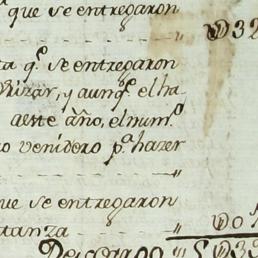 que se entregaron
" 32
ta q.e se entregaron
rizar, y aunq.e el ha
aeste año, el num.o
o venidero p.a hazer
"
que se entregaron
tanza "
Descargo "